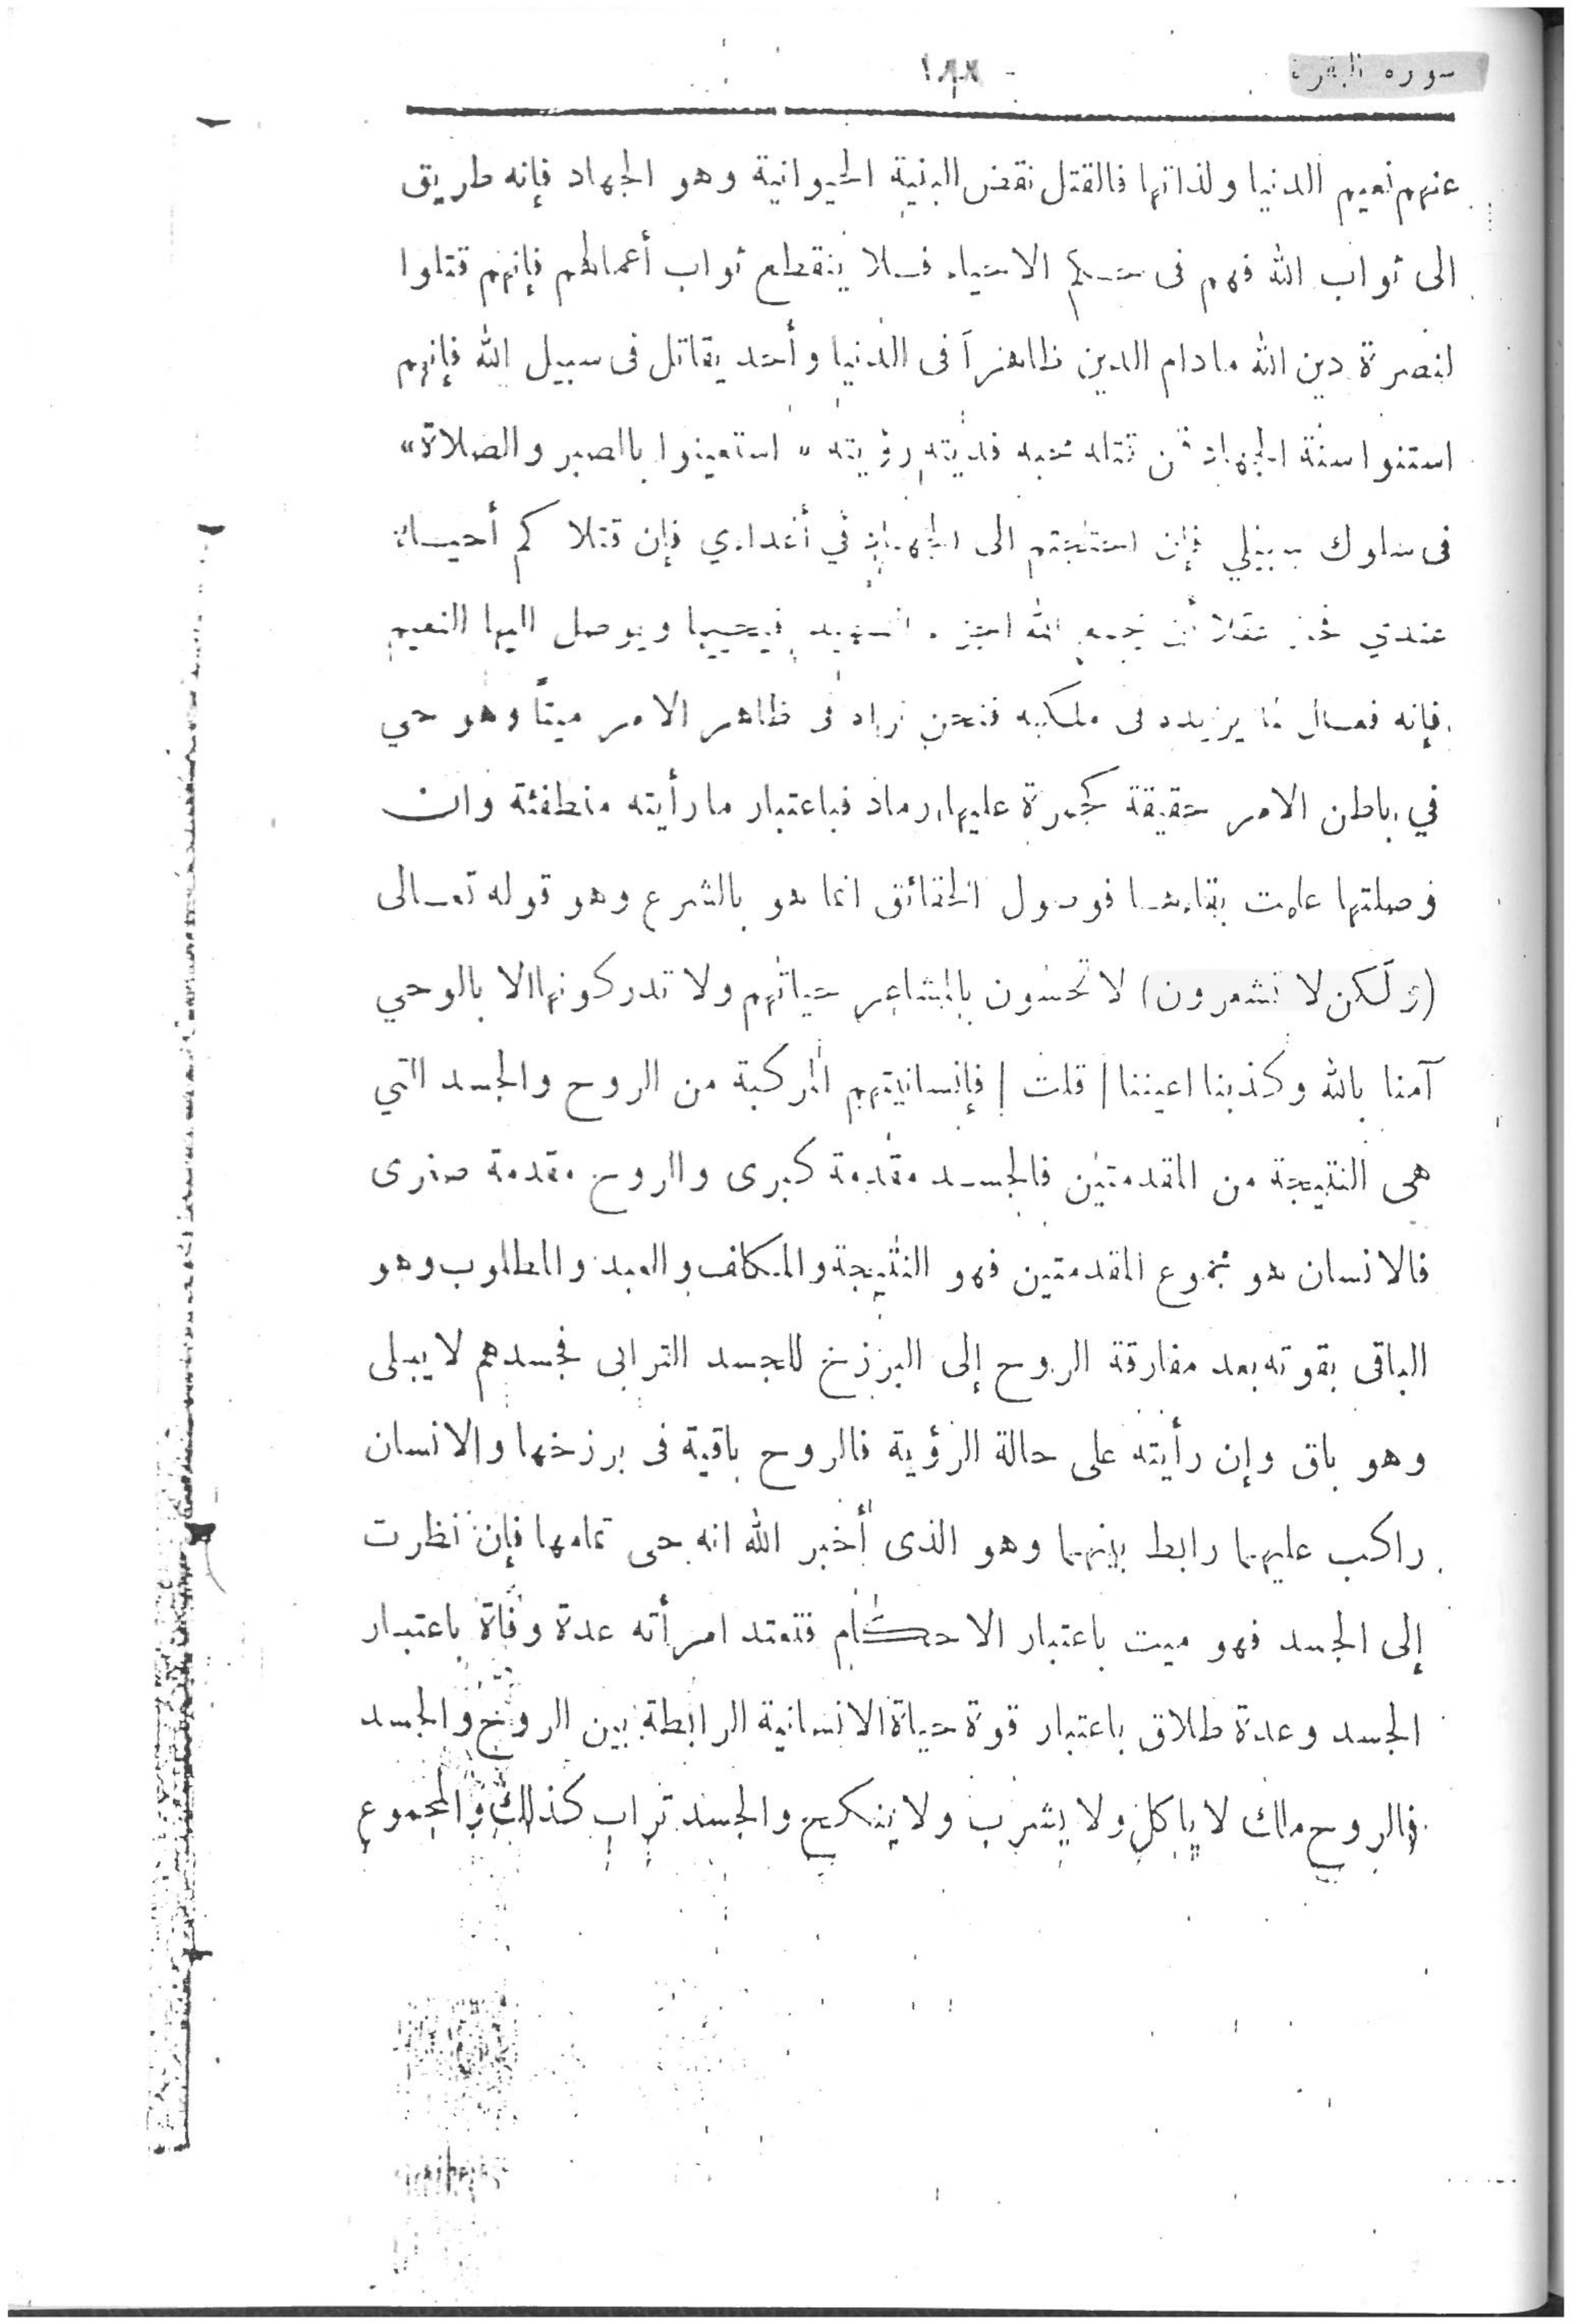 سورة البقرة
عنهم نعيم الدنيا ولذاتها فالقتل نقض البنية الحيوانية وهو الجهاد فإنه طريق
الى ثواب الله فهم فى حكم الاحياء فلا ينقطع ثواب أعمالهم فإنهم قتلوا
لنصرة دين الله مادام الدين ظاهراً فى الدنيا وأحد يقاتل فى سبيل الله فإنهم
استنوا سنة الجهاد فمن قتله حبه فديته رؤيته « استعينوا بالصبر والصلاة »
فى سلوك سبيلي فإن احتجتم الى الجهاد في أعداءي فإن قتلاكم أحياء
عندي عقلا أن يجمع الله الشهيد فيحييها ويوصل اليها النعيم
فإنه فعال لما يريده فى ملكه فنحن نراه فى ظاهر الامر ميتاً وهو حي
في باطن الامر حقيقة كجمرة عليها رماد فباعتبار ما رأيته منطفئة وان
وصلتها علمت بقاءها فوصول الحقائق انما هو بالشرع وهو قوله تعالى
(ولكن لا تشعرون) لا تحسون بالمشاعر حياتهم ولا تدركونها الا بالوحي
آمنا بالله وكذبنا اعيننا / قلت / فإنسانيتهم المركبة من الروح والجسد التي
هى النتيجة من المقدمتين فالجسد مقدمة كبرى والروح مقدمة صغرى
فالانسان هو مجموع المقدمتين فهو النتيجة والمكلف والعبد والمطلوب وهو
الباقى بقوته بعد مفارقة الروح إلى البرزخ للجسد الترابى فجسدهم لا يبلى
وهو باق وإن رأيته على حالة الرؤية فالروح باقية فى برزخها والانسان
راكب عليهما رابط بينهما وهو الذى أخبر الله انه حى تمامها فإن نظرت
إلى الجسد فهو ميت باعتبار الاحكام فتعتد امرأته عدة وفاة باعتبار
الجسد وعدة طلاق باعتبار قوة حياة الانسانية الرابطة بين الروح والجسد
فالروح ملك لا ياكل ولا يشرب ولا ينكح والجسد تراب كذلك والمجموع